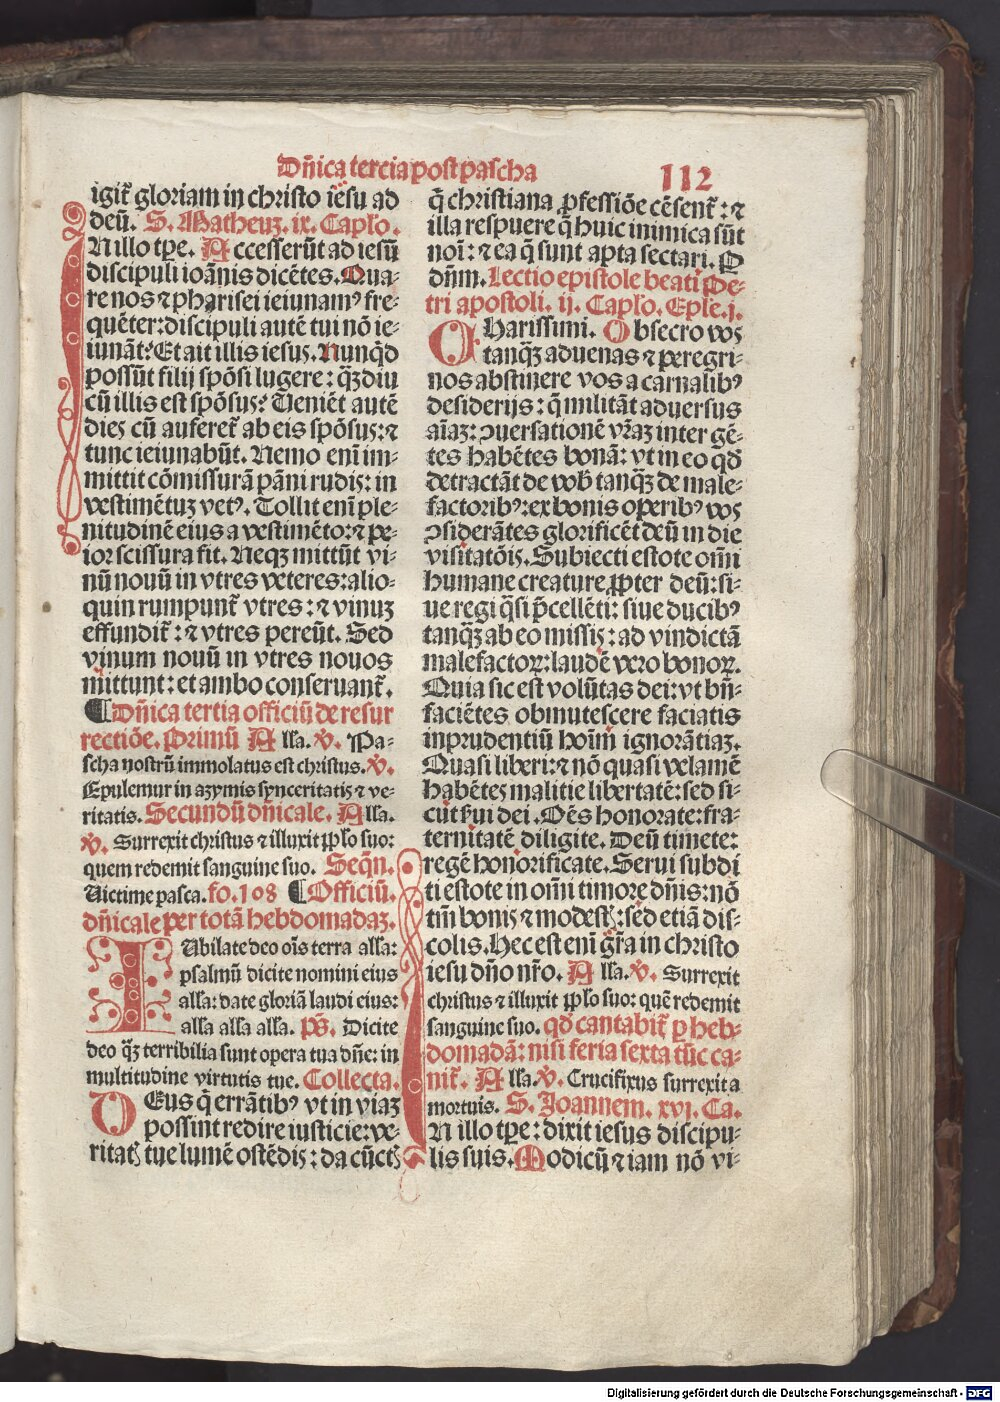 Dn̄ica tercia post pascha 112
igit᷑ gloriam in christo iesu ad
deū. S. Matheuʒ. ix. Caplo.
IN illo tp̄e. Accesserūt ad iesū
discipuli ioānis dicētes. Qua⸗
re nos ⁊ pharisei ieiunamꝰ fre⸗
quēter: discipuli autē tui nō ie⸗
iunāt? Et ait illis iesus. Nunqͥd
possūt filij spōsi lugere: qͣʒdiu
cū illis est spōsus? Ueniēt autē
dies cū auferet᷑ ab eis spōsus: ⁊
tunc ieiunabūt. Nemo eni im⸗
mittit cōmissurā pāni rudis: in
vestimētuʒ vetꝰ. Tollit eni ple⸗
nitudinē eius a vestimēto: ⁊ pe⸗
ior scissura fit. Neqʒ mittūt vi⸗
nū nouū in vtres veteres: alio⸗
quin rumpunt᷑ vtres: ⁊ vinuʒ
effundit᷑: ⁊ vtres pereūt. Sed
vinum nouū in vtres nouos
mittunt: et ambo conseruant᷑.
¶ Dn̄ica tertia officiū de resur
rectiōe. Primū Alla. ℣. Pa⸗
scha nostrū immolatus est christus. ℣.
Epulemur in azymis synceritatis ⁊ ve⸗
ritatis. Secundū dn̄icale. Alla.
℣. Surrexit christus ⁊ illuxit pplo suo:
quem redemit sanguine suo. Seqn̄.
Uictime pasca. fo. 108 ¶ Officiū.
dn̄icale per totā hebdomadaʒ.
IUbilate deo oīs terra alla:
psalmū dicite nomini eius
alla: date gloriā laudi eius:
alla alla alla. Ps̄. Dicite
deo qͣʒ terribilia sunt opera tua dn̄e: in
multitudine virtutis tue. Collecta.
DEus q̄ errātibꝰ vt in viaʒ
possint redire iusticie: ve⸗
ritatꝭ tue lumē ostēdis: da cūctꝭ
q̄ christiana ꝓfessiōe cēsent᷑: ⁊
illa respuere q̄ huic inimica sūt
noī: ⁊ ea q̄ sunt apta sectari. P
dn̄m. Lectio epistole beati Pe⸗
tri apostoli. ij. Caplo. Eple. j.
CHarissimi. Obsecro vos
tanqͣʒ aduenas ⁊ peregri⸗
nos abstinere vos a carnalibꝰ
desiderijs: q̄ militāt aduersus
aīaʒ: ꝯuersationē vr̄aʒ inter gē⸗
tes habētes bonā: vt in eo qd̄
detractāt de vob̄ tanqͣʒ de male⸗
factoribꝰ: ex bonis operibꝰ vos
ꝯsiderātes glorificēt deū in die
visitatōis. Subiecti estote om̄i
humane creature ꝓpter deū: si⸗
ue regi qͣsi p̄cellēti: siue ducibꝰ
tanqͣʒ ab eo missis: ad vindictā
malefactoꝝ: laudē vero bonoꝝ.
Quia sic est volūtas dei: vt bn̄⸗
faciētes obmutescere faciatis
inprudentiū hoīm ignorātiaʒ.
Quasi liberi: ⁊ nō quasi velamē
habētes malitie libertatē: sed si⸗
cut ẜui dei. Oēs honorate: fra⸗
ternitatē diligite. Deū timete:
regē honorificate. Serui subdi
ti estote in om̄i timore dn̄is: nō
tm̄ bonis ⁊ modestꝭ: sed etiā dis⸗
colis. Hec est eni gr̄a in christo
iesu dn̄o nr̄o. Alla. ℣. Surrexit
christus ⁊ illuxit pplo suo: quē redemit
sanguine suo. qd̄ cantabit᷑ ꝑ heb⸗
domadā: nisi feria sexta tūc ca⸗
nit᷑. Alla. ℣. Crucifixus surrexit a
mortuis. S. Joannem. xvi. Ca.
IN illo tp̄e: dixit iesus discipu⸗
lis suis. Modicū ⁊ iam nō vi⸗
Digitalisierung gefördert durch die Deutsche Forschungsgemeinschaft - DFG